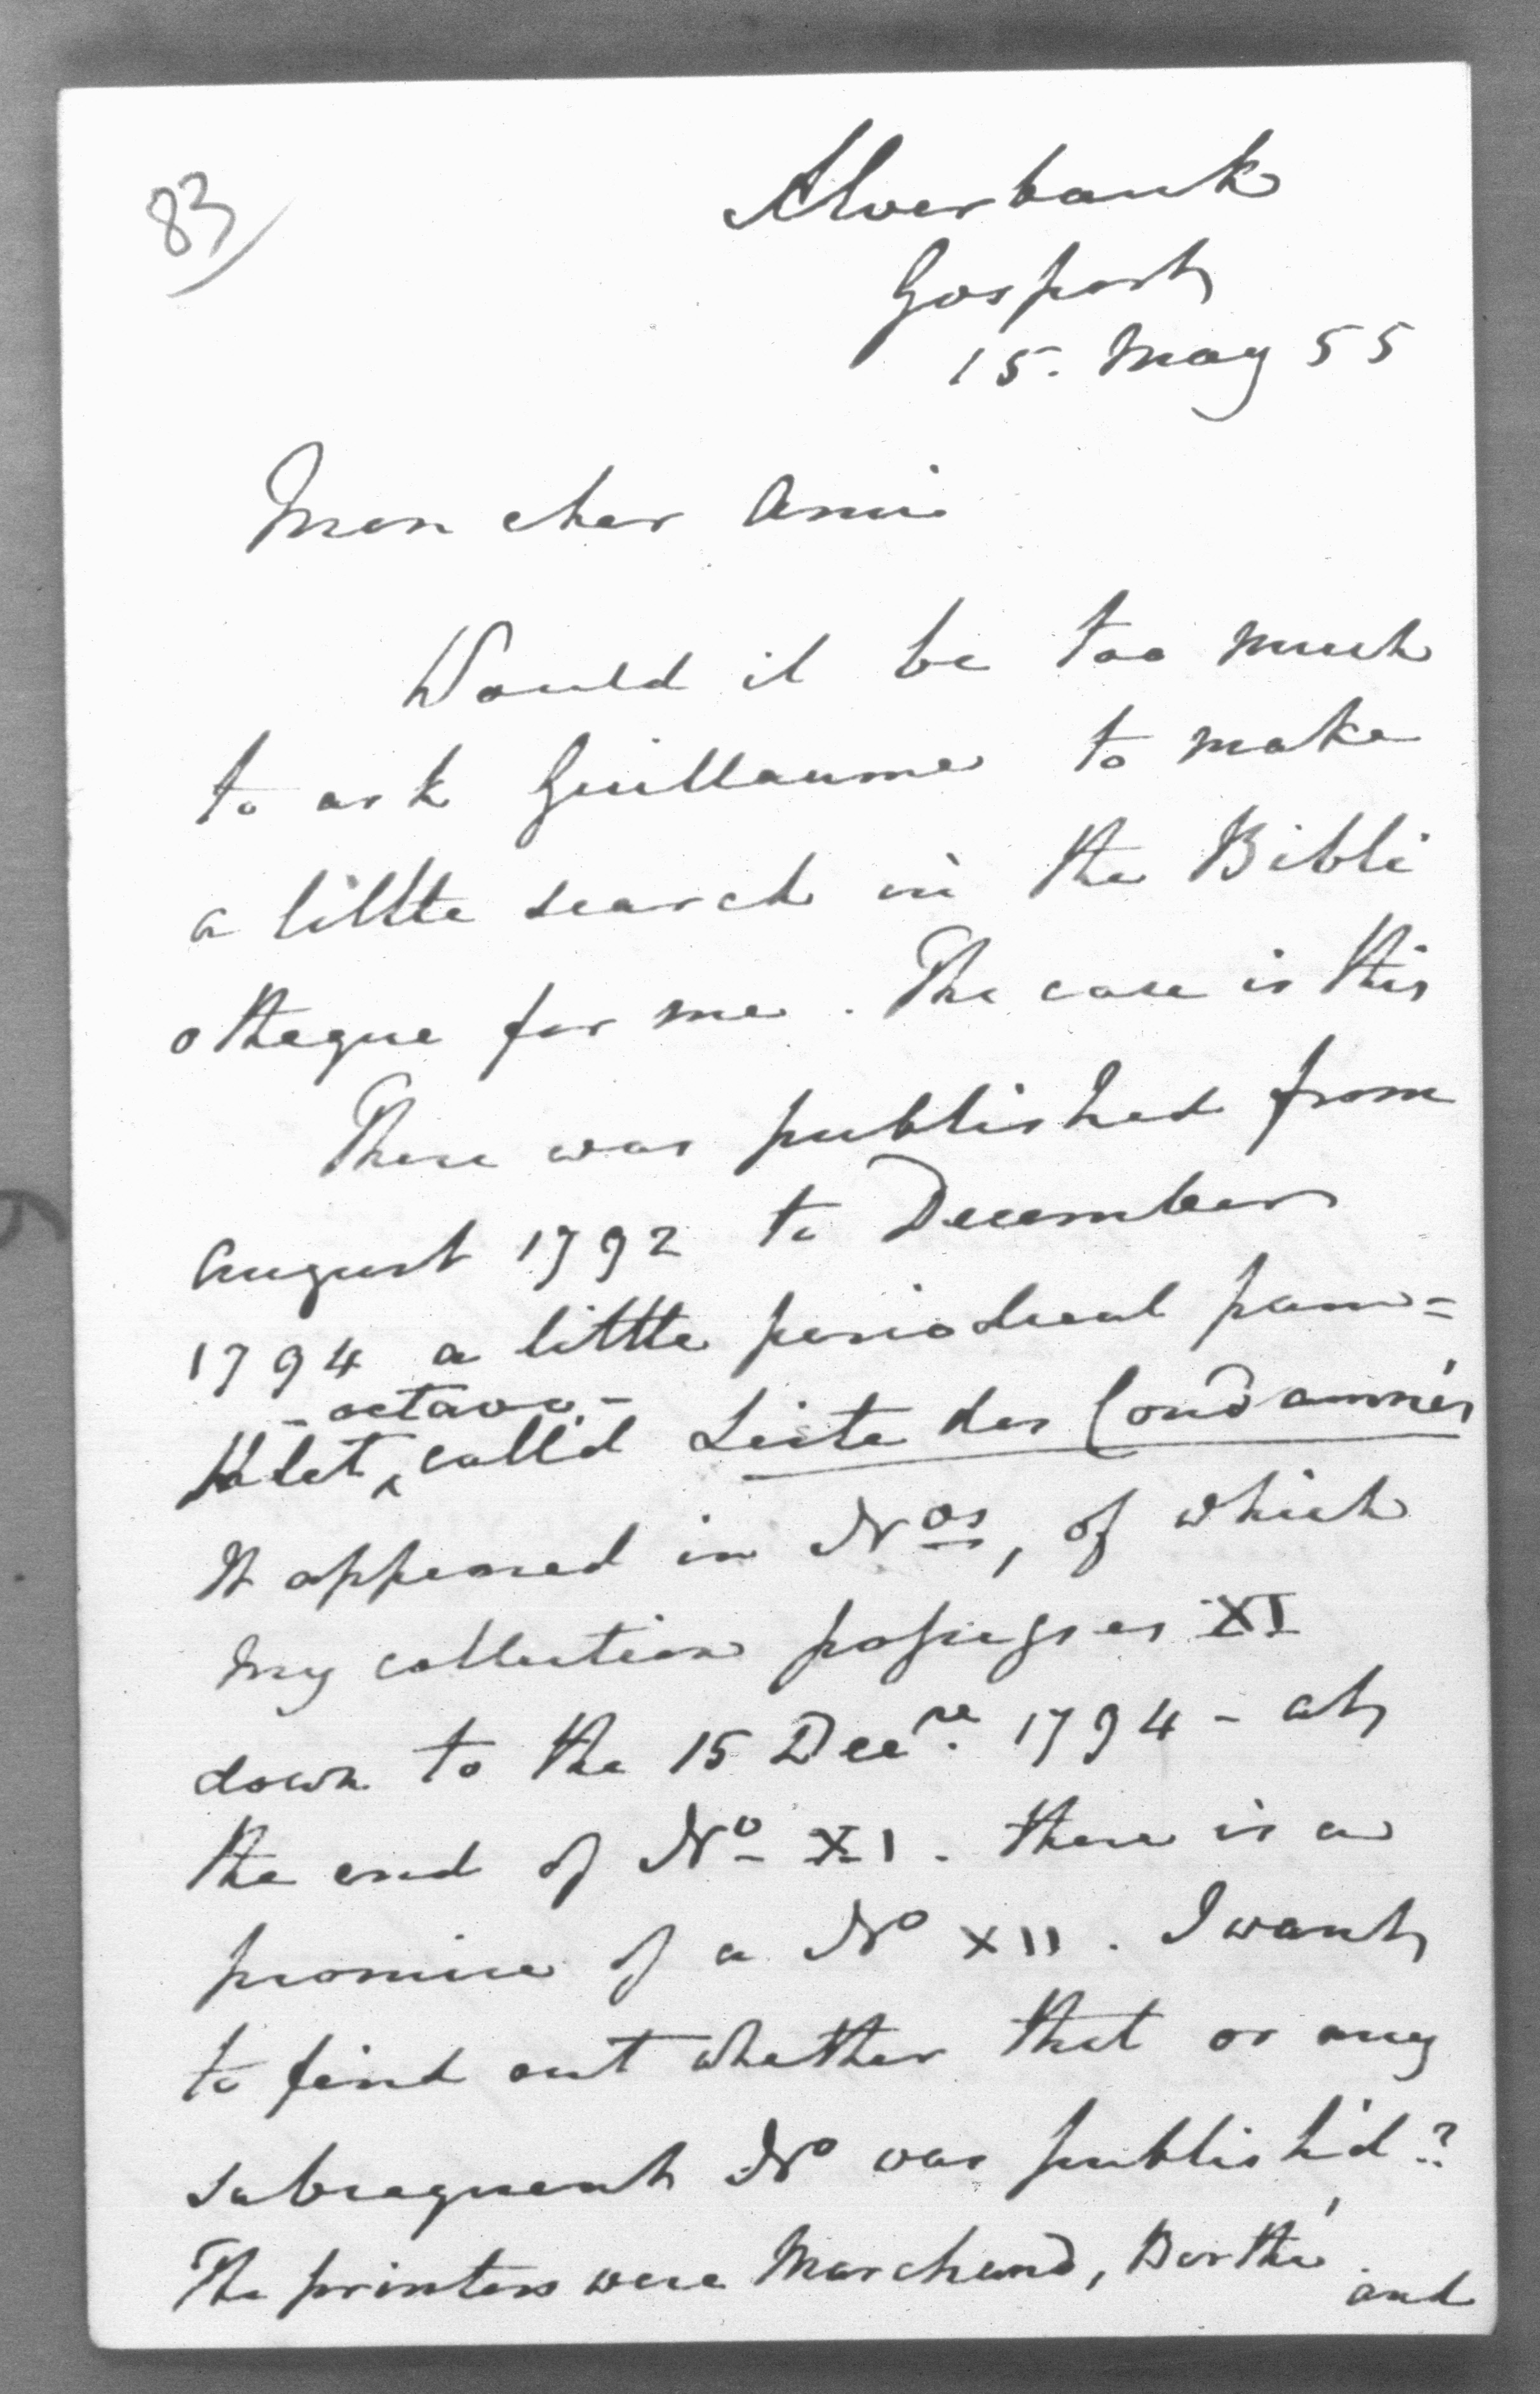 83
Alverbank
Gosport
15. May 55
Mon cher Ami
Would it be too much
to ask Guillaume to make
a little search in the Bibli
otheque for me. The case is this
There was published from
August 1792 to December
1794 a little periodical pam=
- octavo -
phlet ‸ call'd Liste des Condamnés
It appeared in Nos, of which
my collection possesses XI
down to the 15 Decre. 1794 - at
the end of No XI. there is a
promise of a No XII. I want
to find out whether that or any
subsequent No was publish'd?
The printers were Marchand, Berthé
and